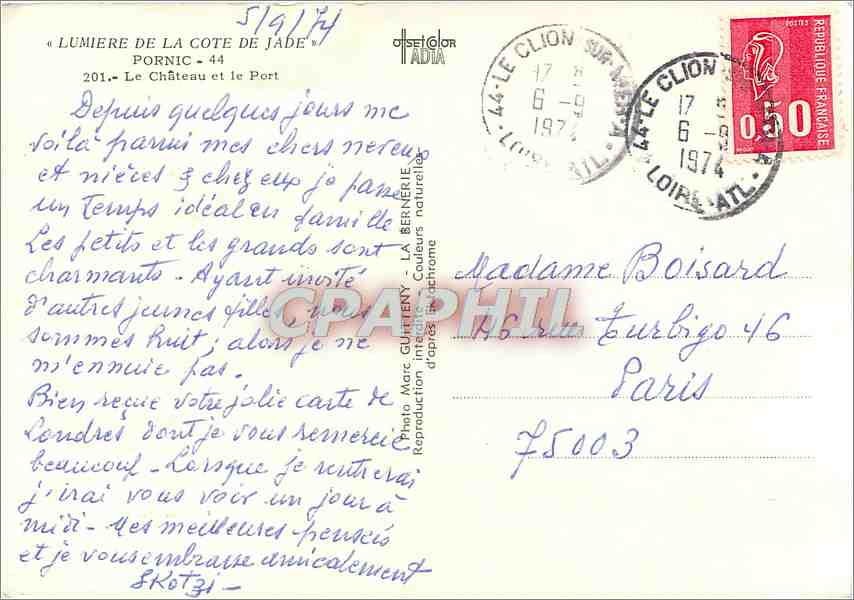 5/9/74
« LUMIERE DE LA COTE DE JADE »
PORNIC - 44
201.- Le Château et le Port
OFFSETCOLOR
ADIA
Depuis quelques jours me
voilà parmi mes chers neveux
et nièces & chez eux je passe
un temps idéal en famille
Les petits et les grands sont
charmants - Ayant invité
d'autres jeunes filles, nous
sommes huit ; alors je ne
m'ennuie pas.
Bien reçue votre jolie carte de
Londres dont je vous remercie
beaucoup - Lorsque je rentrerai
j'irai vous voir un jour à
midi - Mes meilleures pensées
et je vous embrasse amicalement
Photo Marc GUITTENY - LA BERNERIE
Reproduction interdite - Couleurs naturelles
d'après Ektachrome
CPAPHIL
44-LE CLION SUR-MER
17 H
6 -9
1974
LOIRE-ATL.
44-LE CLION
17
6 -9
1974
LOIRE-ATL.
POSTES
REPUBLIQUE FRANÇAISE
0,50
Madame Boisard
46 rue Turbigo 46
Paris
75003